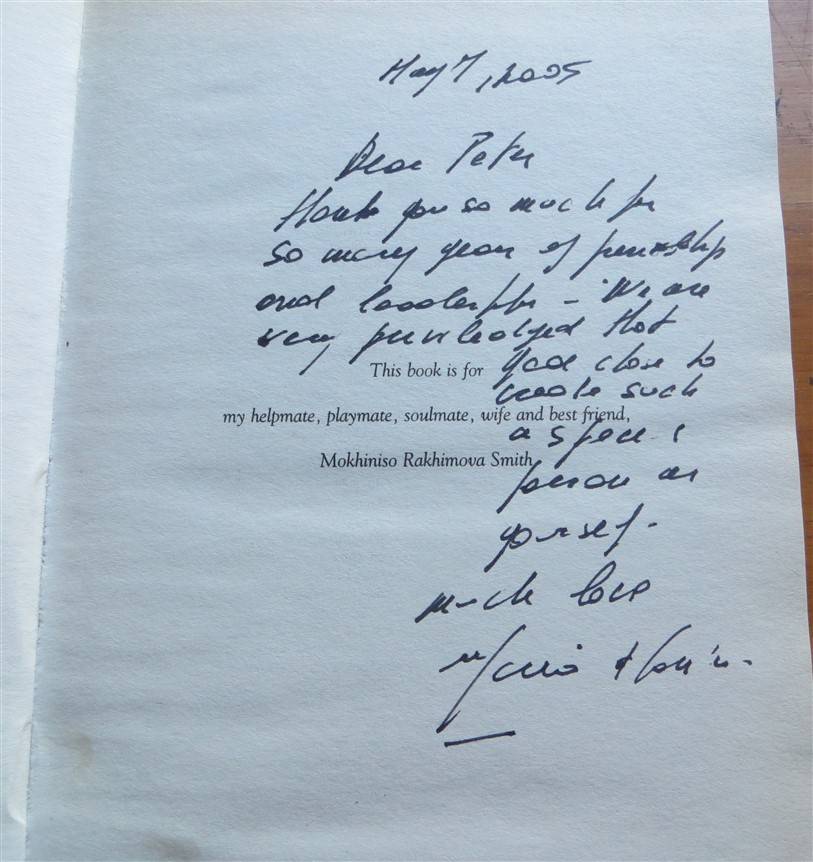 May 7, 2005
Dear Peter
thank you so much for
so many years of frendship
and leadership - We are
very priviledged that
This book is for
God chose to
create such
my helpmate, playmate, soulmate, wife and best friend,
a special
Mokhiniso Rakhimova Smith
person as
yourself.
much love